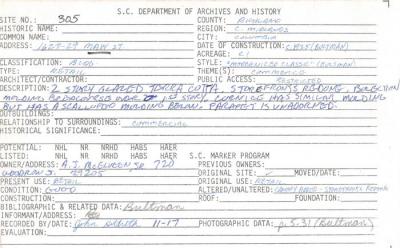 S.C. DEPARTMENT OF ARCHIVES AND HISTORY
SITE NO. 305 COUNTY: RICHLAND
HISTORIC NAME: REGION: C. MIDLANDS
COMMON NAME: CITY: COLUMBIA
ADDRESS: 1627-29 MAIN ST DATE OF CONSTRUCTION: C. 1935 (BULTMAN)
ACREAGE: <1
CLASSIFICATION: BLDG STYLE: "MODERNIZED CLASSIC" (BULTMAN)
TYPE: RETAIL THEME(S): COMMERCE
ARCHITECT/CONTRACTOR: PUBLIC ACCESS: RESTRICTED
DESCRIPTION: 2 STORY GLAZED TERRA COTTA. STOREFRONTS REDONE.
MOLDING 1ST STORY. CORNICE HAS SIMILAR MOLDING
BUT HAS A SCALLOPED MOLDING BELOW. PARAPET IS UNADORNED.
OUTBUILDINGS:
RELATIONSHIP TO SURROUNDINGS: COMMERCIAL
HISTORICAL SIGNIFICANCE:
POTENTIAL: NHL NR NRHD HABS HAER
LISTED: NHL NR NRHD HABS HAER S.C. MARKER PROGRAM
OWNER/ADDRESS: A.J. Jr 720 PREVIOUS OWNERS:
WOODROW ST. 29205 ORIGINAL SITE: ✓ MOVED/DATE:
PRESENT USE: RETAIL ORIGINAL USE: RETAIL
CONDITION: GOOD ALTERED/UNALTERED:
CONSTRUCTION: ROOF: FOUNDATION:
BIBLIOGRAPHIC & RELATED DATA: Bultman
INFORMANT/ADDRESS:
RECORDED BY/DATE: John 11-17 PHOTOGRAPHIC DATA: p. 5.31 (Bultman)
EVALUATION: